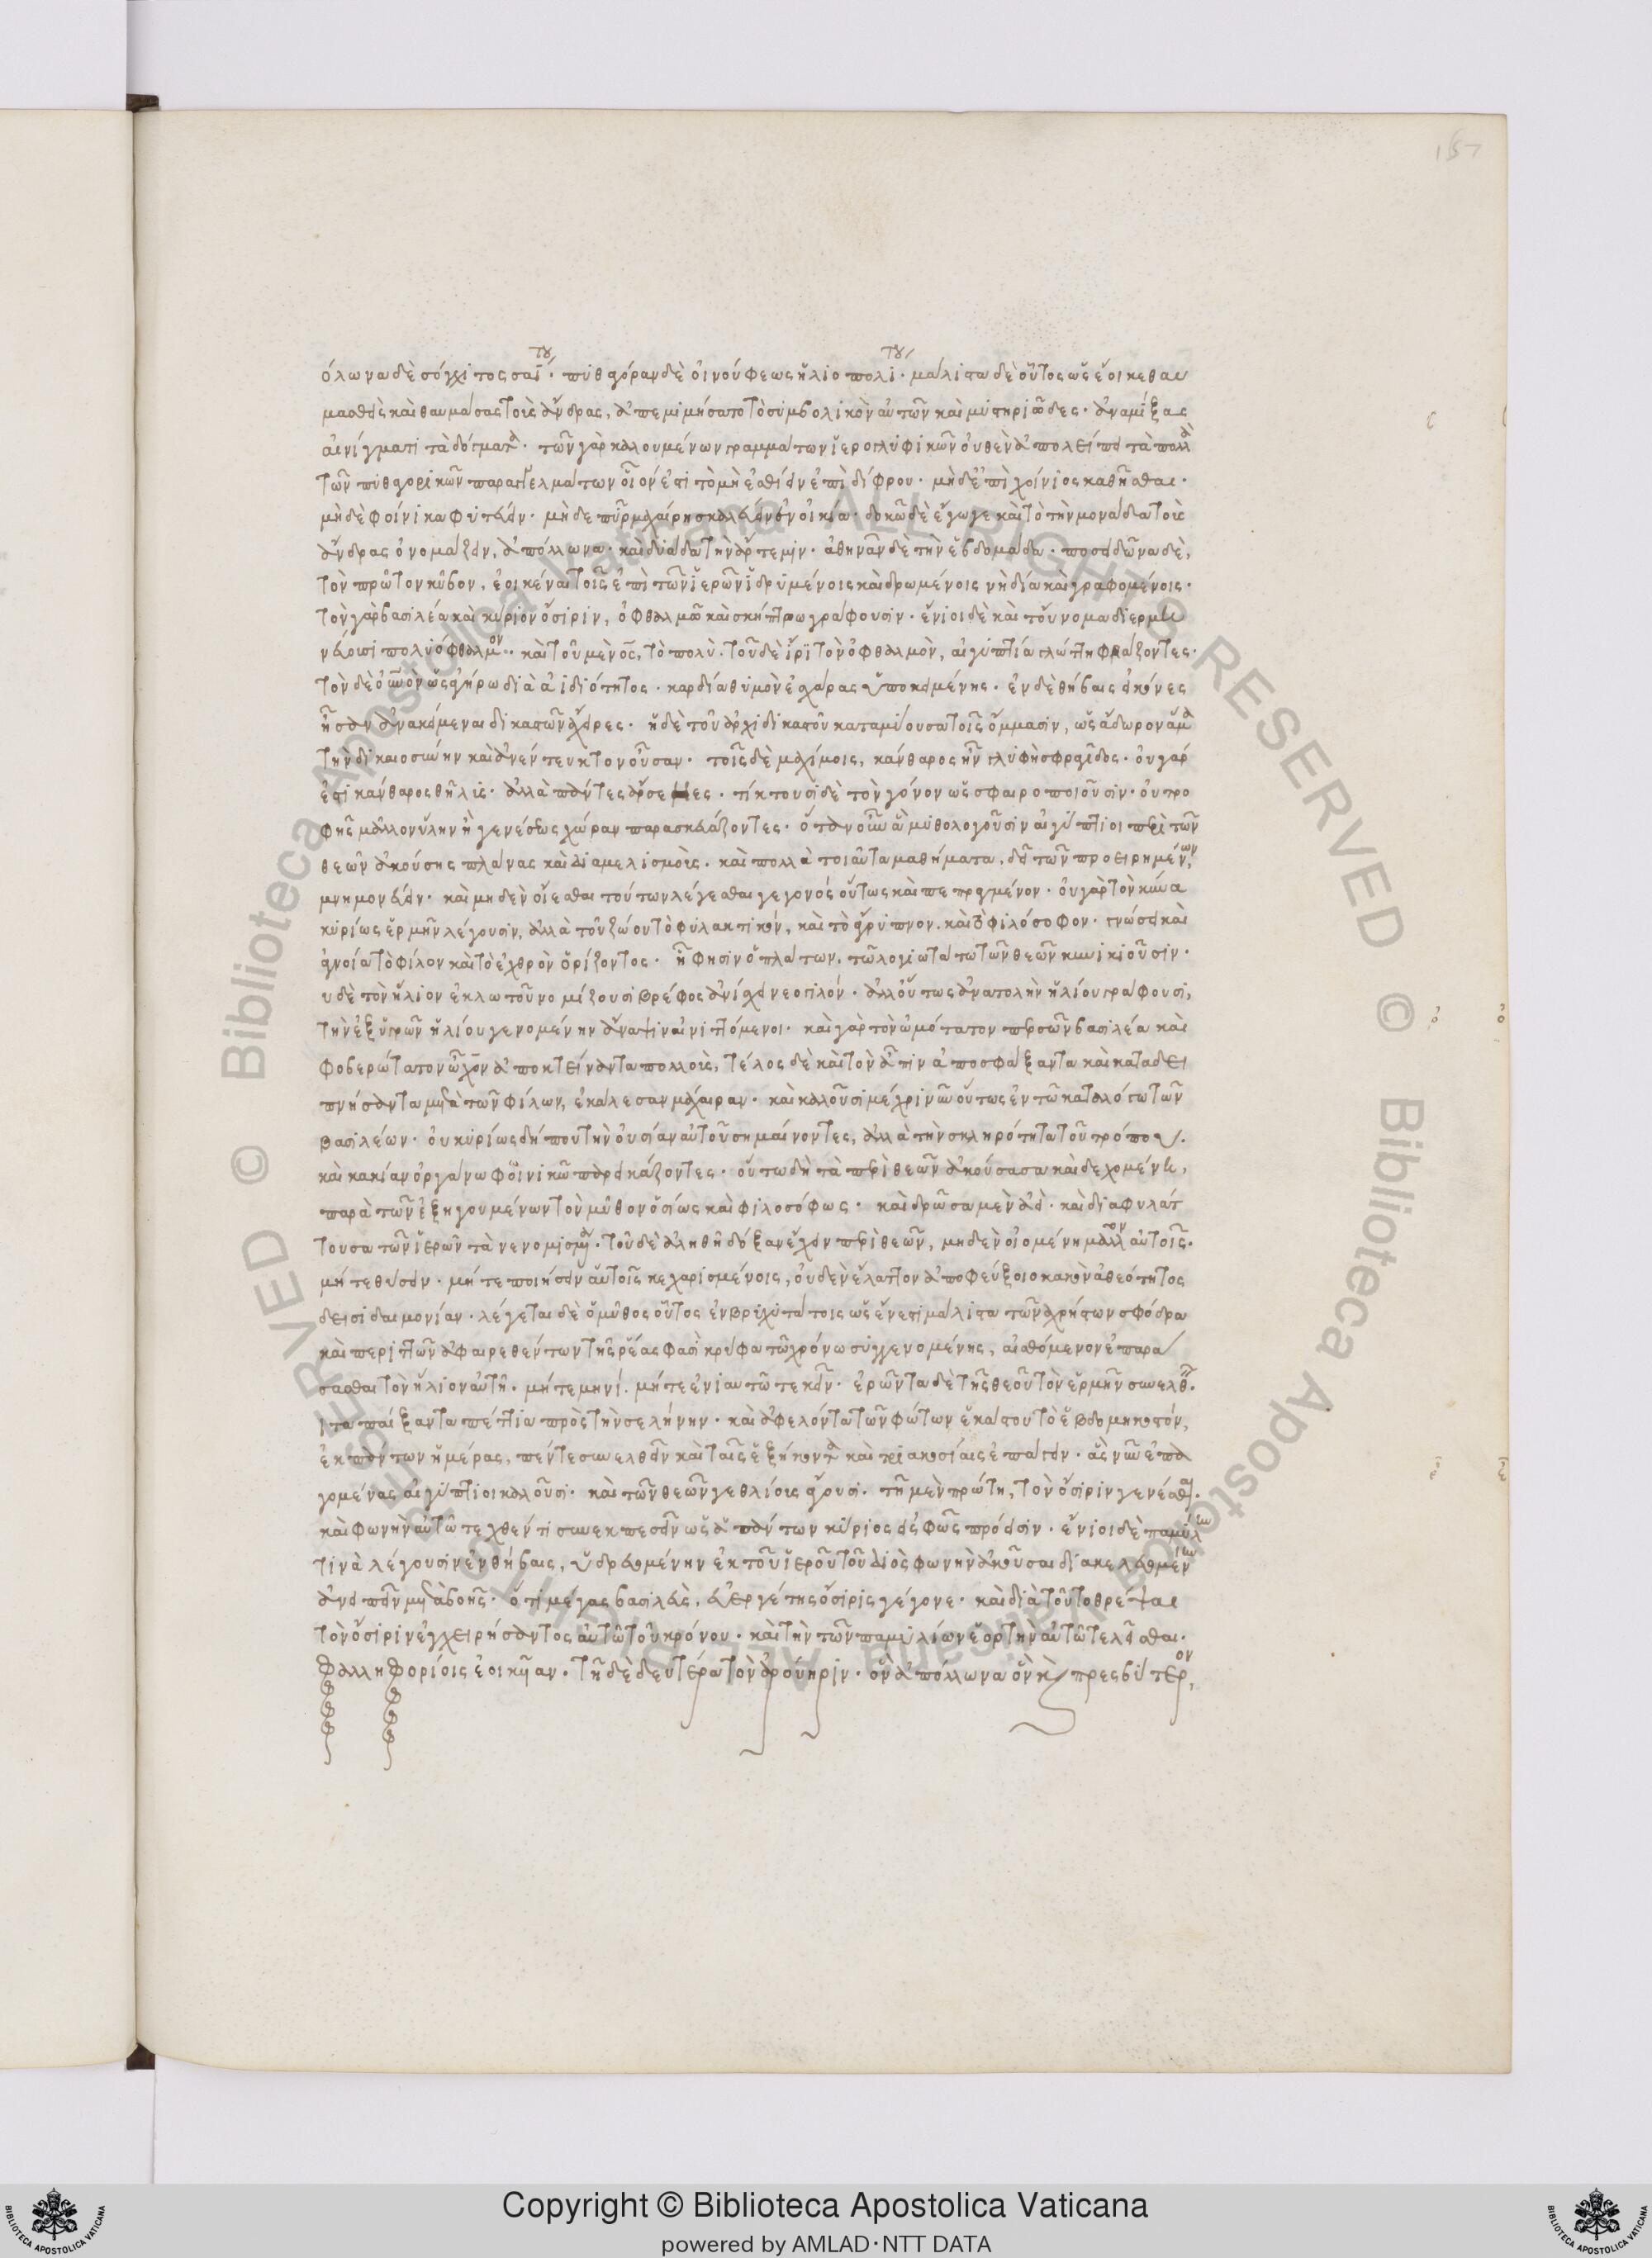 187
όλωνα δὲ σόγχιτος σαΐτου· πυθαγόραν δὲ οἰνούφεως ἡλιοπολίτου· μάλιστα δὲ οὗτος ὡς ἔοικε θαυ
μασθεὶς καὶ θαυμάσας τοὺς ἄνδρας, ἀπεμιμήσατο τὸ συμβολικὸν αὐτῶν καὶ μυστηριῶδες· ἀναμίξας
αἰνίγμασι τὰ δόγματα· τῶν γὰρ καλουμένων γραμμάτων ἱερογλυφικῶν οὐθὲν ἀπολείπει τὰ πολλὰ
τῶν πυθαγορικῶν παραγγελμάτων οἷόν ἐστι τὸ μὴ ἐσθίειν ἐπὶ δίφρου· μηδ' ἐπὶ χοίνικος καθῆσθαι·
μηδὲ φοίνικα φυτεύειν· μηδὲ πῦρ μαχαίρῃ σκαλεύειν ἐν οἰκία· δοκῶ δὲ ἔγωγε καὶ τὸ τὴν μονάδα τοὺς
ἄνδρας ὀνομάζειν, ἀπόλλωνα· καὶ δυάδα τὴν ἄρτεμιν· ἀθηνᾶν δὲ τὴν ἑβδομάδα· ποσειδῶνα δὲ,
τὸν πρῶτον κύβον, ἐοικέναι τοῖς ἐπὶ τῶν ἱερῶν ἱδρυμένοις καὶ δρωμένοις νὴ δία καὶ γραφομένοις·
τὸν γὰρ βασιλέα καὶ κύριον ὄσιριν, ὀφθαλμῶ καὶ σκήπτρω γράφουσιν· ἔνιοι δὲ καὶ τοὔνομα διερμη
νεύουσι πολυόφθαλμον· καὶ τοῦ μὲν ὂς, τὸ πολὺ· τοῦ δὲ ἶρι τὸν ὀφθαλμὸν, αἰγυπτία γλώττη φράζοντες·
τὸν δὲ οὐρανὸν ὡς ἀγήρω διὰ ἀϊδιότητος· καρδία θυμὸν ἐσχάρας ὑποκειμένης· ἐν δὲ θήβαις εἰκόνες
ἦσαν ἀνακείμεναι δικαστῶν ἄχειρες· ἡ δὲ τοῦ ἀρχιδικαστοῦ καταμύουσα τοῖς ὄμμασιν, ὡς ἄδωρον ἅμα
τὴν δικαιοσύνην καὶ ἀνέντευκτον οὖσαν· τοῖς δὲ μαχίμοις, κάνθαρος ἦν γλυφὴ σφραγῖδος· οὐ γάρ
ἐστι κάνθαρος θῆλυς· ἀλλὰ πάντες ἄρσενες· τίκτουσι δὲ τὸν γόνον ὡς σφαιροποιοῦσιν· οὐ τρο
φῆς μᾶλλον ὕλην ἢ γενέσεως χώραν παρασκευάζοντες· ὅταν οὖν ἃ μυθολογοῦσιν αἰγύπτιοι περὶ τῶν
θεῶν ἀκούσης πλάνας καὶ διαμελισμοὺς· καὶ πολλὰ τοιαῦτα μαθήματα, δεῖ τῶν προειρημένων,
μνημονεύειν· καὶ μηδὲν οἴεσθαι τούτων λέγεσθαι γεγονὸς οὕτως καὶ πεπραγμένον· οὐ γὰρ τὸν κύνα
κυρίως ἑρμῆν λέγουσιν, ἀλλὰ τοῦ ζώου τὸ φυλακτικὸν, καὶ τὸ ἄγρυπνον· καὶ τὸ φιλόσοφον· γνώσει καὶ
ἀγνοία τὸ φίλον καὶ τὸ ἐχθρὸν ὁρίζοντος· ἧ φησιν ὁ πλάτων, τῶ λογιωτάτω τῶν θεῶν συνοικειοῦσιν·
υδὲ τὸν ἥλιον ἐκ λωτοῦ νομίζουσι βρέφος ἀνίσχειν νεογιλόν· ἀλλ' οὕτως ἀνατολὴν ἡλίου γράφουσι,
τὴν ἐξ ὑγρῶν ἡλίου γενομένην ἄναψιν αἰνιττόμενοι· καὶ γὰρ τὸν ὠμότατον περσῶν βασιλέα καὶ
φοβερώτατον ὦχον ἀποκτείναντα πολλοὺς, τέλος δὲ καὶ τὸν ἆπιν ἀποσφάξαντα καὶ καταδει
πνήσαντα μετὰ τῶν φίλων, ἐκάλεσαν μάχαιραν· καὶ καλοῦσι μέχρι νῦν οὕτως ἐν τῶ καταλόγω τῶν
βασιλέων· οὐ κυρίως δήπου τὴν οὐσίαν αὐτοῦ σημαίνοντες, ἀλλὰ τὴν σκληρότητα τοῦ τρόπου·
καὶ κακίαν ὀργάνω φονικῶ παρεικάζοντες· οὕτω δὴ τὰ περὶ θεῶν ἀκούσασα καὶ δεχομένη,
παρὰ τῶν ἐξηγουμένων τὸν μῦθον ὁσίως καὶ φιλοσόφως· καὶ δρῶσα μὲν ἀεὶ· καὶ διαφυλάτ
τουσα τῶν ἱερῶν τὰ νενομισμένα· τοῦ δὲ ἀληθῆ δόξαν ἔχειν περὶ θεῶν, μηδὲν οἰομένη μᾶλλον αὐτοῖς·
μήτε θύσειν· μήτε ποιήσειν αὐτοῖς κεχαρισμένοις, οὐδὲν ἔλαττον ἀποφεύξοιο κακὸν ἀθεότητος
δεισιδαιμονίαν· λέγεται δὲ ὁ μῦθος οὗτος ἐν βραχυτάτοις ὡς ἔνεστι μάλιστα τῶν ἀχρήστων σφόδρα
καὶ περιττῶν ἀφαιρεθέντων τῆς ῥέας φασὶ κρύφα τῶ χρόνω συγγενομένης, αἰσθόμενον ἐπαρά
σασθαι τὸν ἥλιον αὐτῆ· μήτε μηνί· μήτε ἐνιαυτῶ τεκεῖν· ἐρῶντα δὲ τῆς θεοῦ τὸν ἑρμῆν συνελθεῖν·
ιτα παίξαντα πέττια πρὸς τὴν σελήνην· καὶ ἀφελόντα τῶν φώτων ἑκάστου τὸ ἑβδομηκοστόν,
ἐκ πάντων ἡμέρας, πέντε συνελθεῖν καὶ ταῖς ἑξήκοντα καὶ τριακοσίαις ἐπάγειν· ἃς νῦν ἐπα
γομένας αἰγύπτιοι καλοῦσι· καὶ τῶν θεῶν γεθλίους ἄγουσι· τῆ μὲν πρώτη, τὸν ὄσιριν γενέσθαι·
καὶ φωνὴν αὐτῶ τεχθέντι συνεκπεσεῖν ὡς ἁπάντων κύριος εἰς φῶς πρόεισιν· ἔνιοι δὲ παμύλην
τινὰ λέγουσιν ἐν θήβαις, ὑδρευομένην ἐκ τοῦ ἱεροῦ τοῦ διὸς φωνὴν ἀκοῦσαι διακελευομένην
ἀνειπεῖν μετὰ βοῆς· ὅτι μέγας βασιλεὺς, εὐεργέτης ὄσιρις γέγονε· καὶ διὰ τοῦτο θρέψαι
τὸν ὄσιριν ἐγχειρήσαντος αὐτῶ τοῦ κρόνου· καὶ τὴν τῶν παμυλίων ἑορτὴν αὐτῶ τελεῖσθαι·
φαλληφορίοις ἐοικυῖαν· τῆ δὲ δευτέρα τὸν ἀρούηριν· ὃν ἀπόλλωνα ὃν καὶ πρεσβύτερον,
Copyright © Biblioteca Apostolica Vaticana
powered by AMLAD·NTT DATA